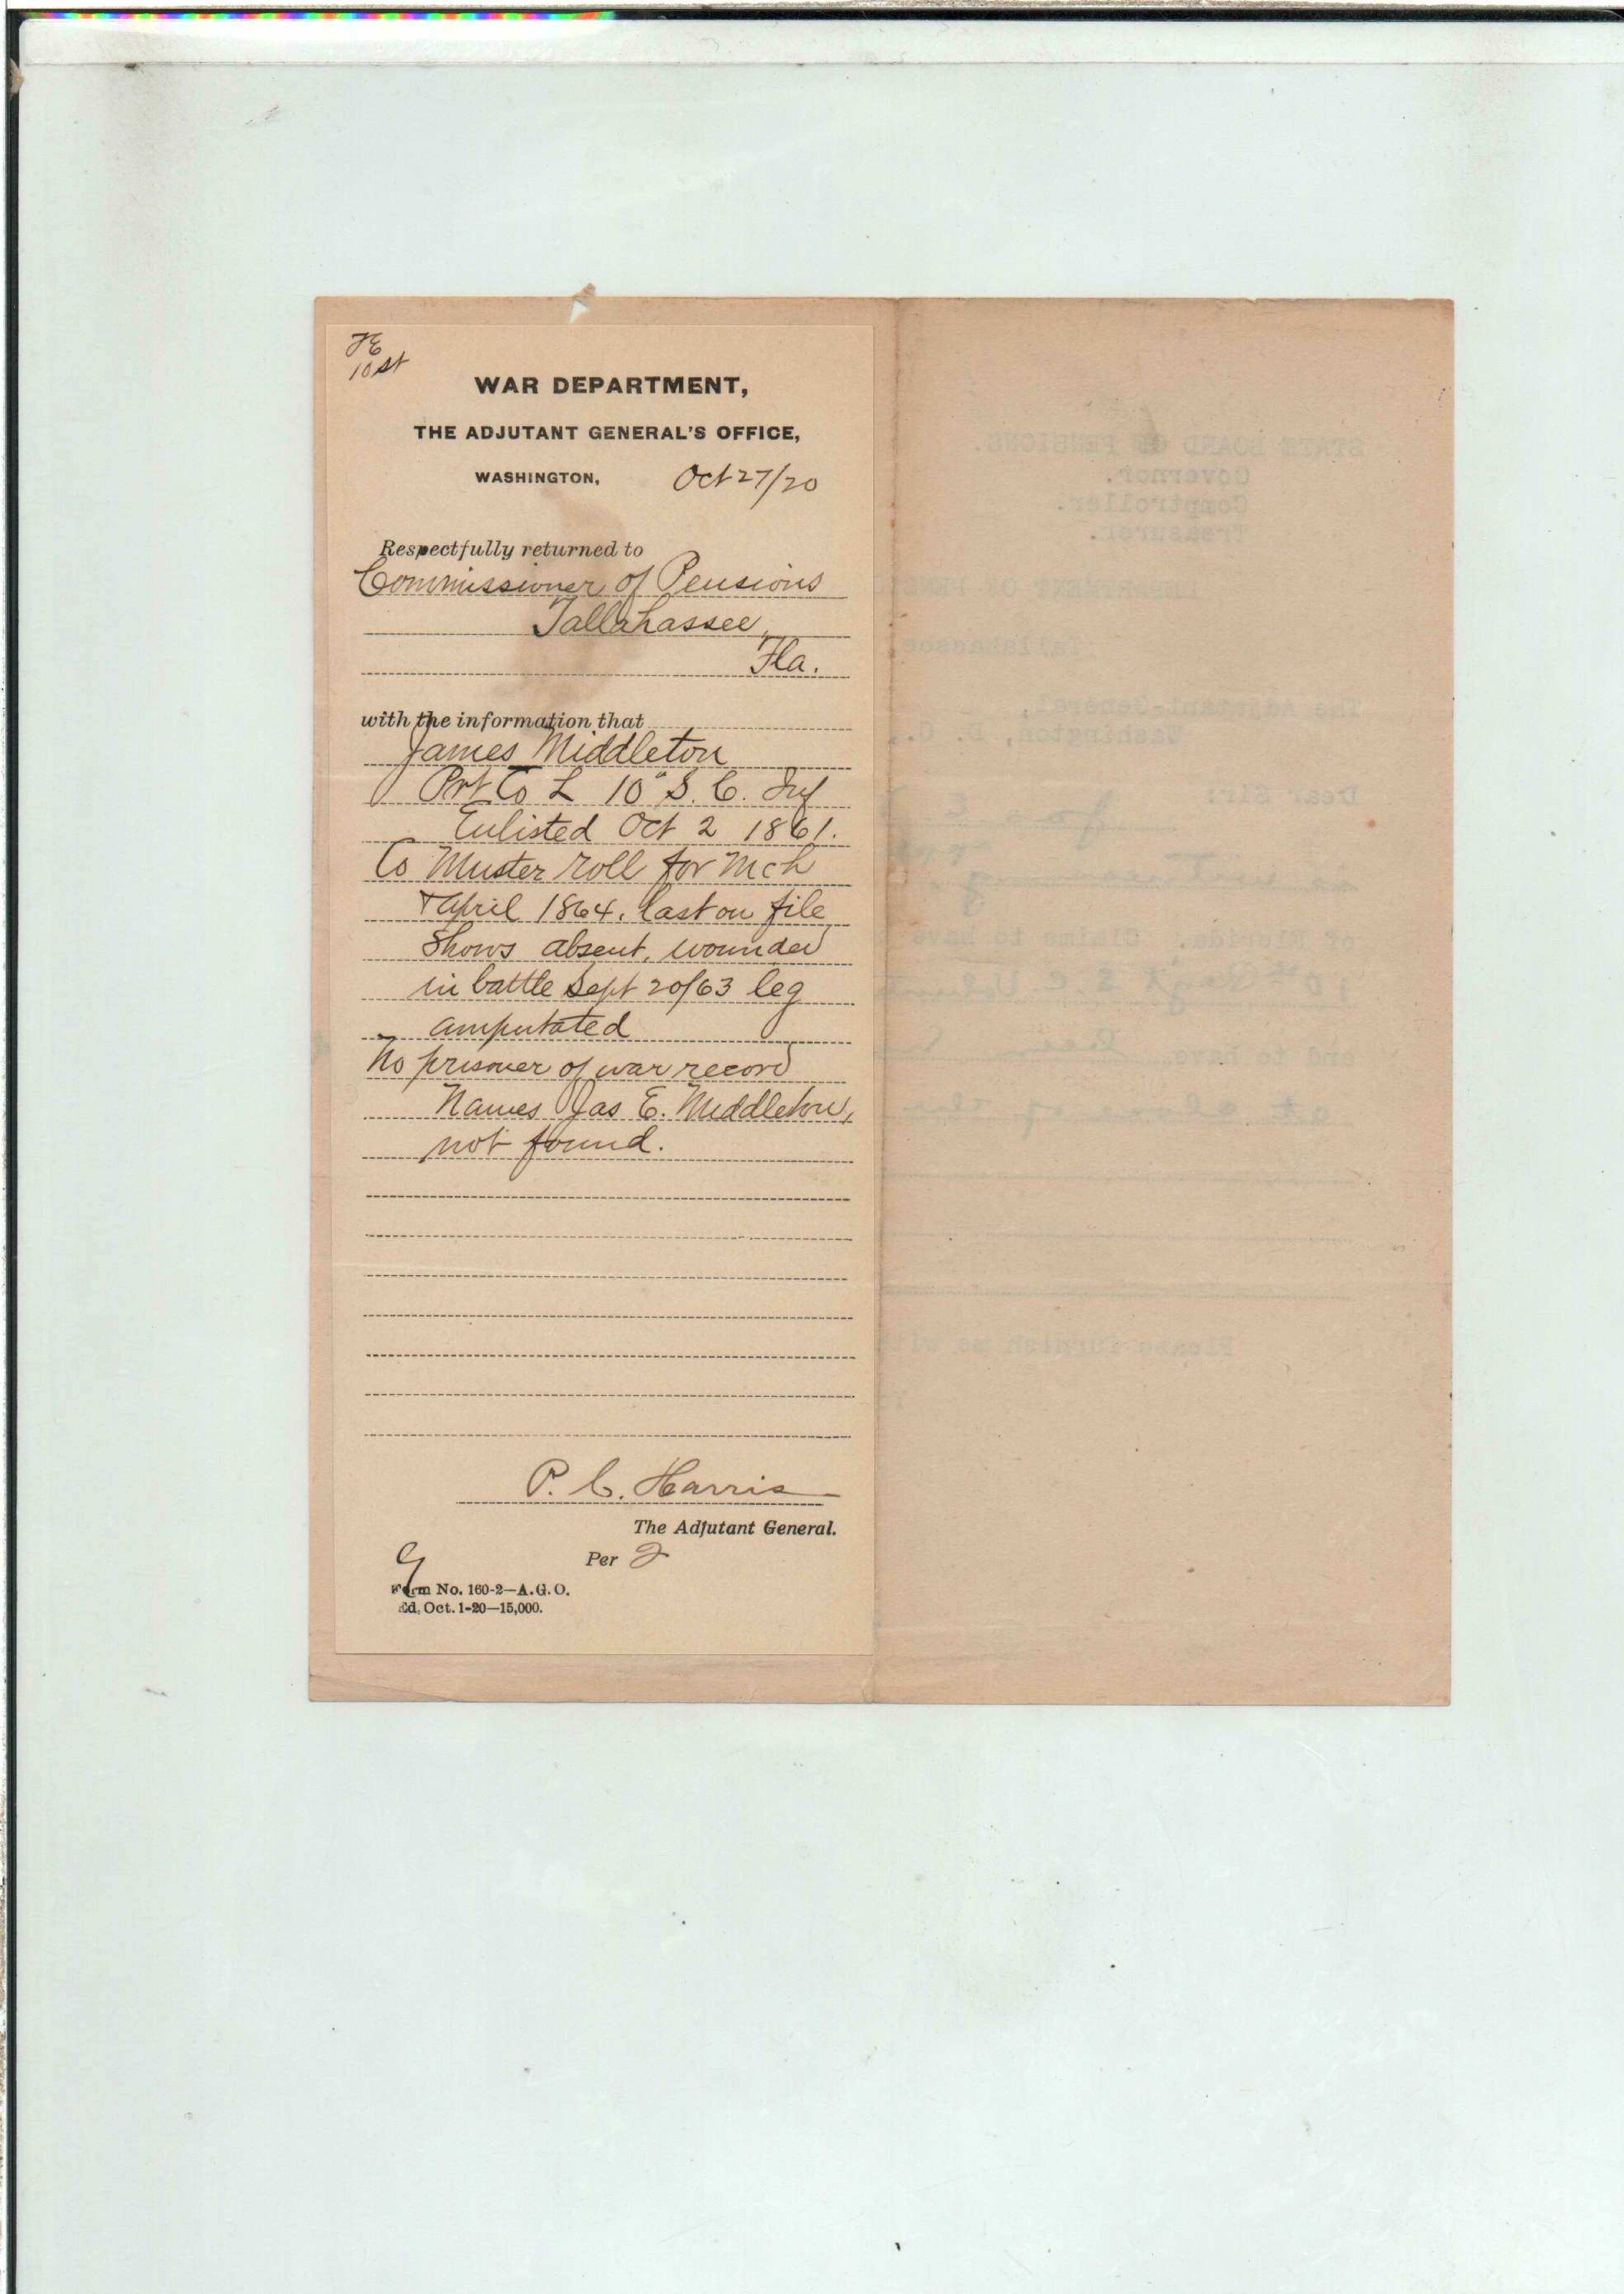 10 st
WAR DEPARTMENT,
THE ADJUTANT GENERAL'S OFFICE,
WASHINGTON, Oct 27/20
Respectfully returned to
Commissioner of Pensions
Tallahassee,
Fla.
with the information that
James Middleton
Pvt Co L 10" S. C. Inf
Enlisted Oct 2 1861.
Co Muster roll for Mch
& April 1864, last on file
Shows absent, wounded
in battle Sept 20/63 leg
amputated
No prisoner of war record
Names Jas E. Middleton,
not found.
P. C. Harris
The Adjutant General.
Per
Form No. 160-2—A.G.O.
Ed. Oct. 1-20—15,000.
STATE BOARD OF PENSIONS.
Governor.
Comptroller.
Treasurer.
DEPARTMENT OF PENS
Tallahassee,
The Adjutant-General,
Washington, D. C.,
Dear Sir:
of Florida. Claims to have
and to have
Please furnish me with